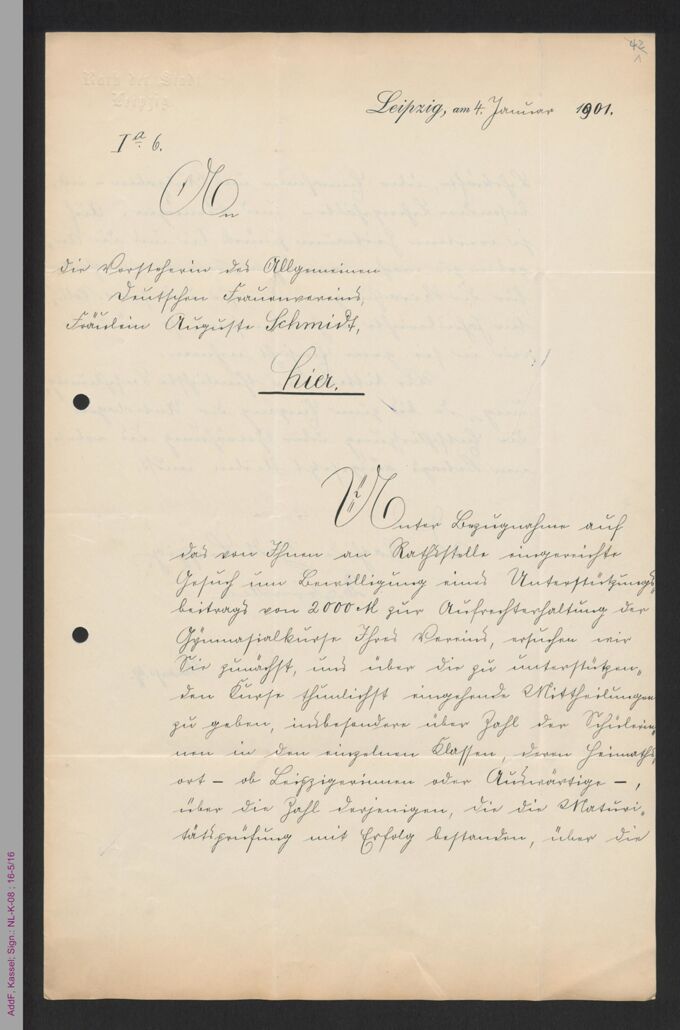 42
1
Rath der Stadt
Leipzig.
Leipzig, am 4. Januar 1901.
Ia. 6.
An
die Vorsteherin des Allgemeinen
Deutschen Frauenvereins,
Fräulein Auguste Schmidt,
hier.
Unter Bezugnahme auf
das von Ihnen an Rathsstelle eingereichte
Gesuch um Bewilligung eines Unterstützungs-
beitrags von 2000 M zur Aufrechterhaltung der
Gymnasialkurse Ihres Vereins, ersuchen wir
Sie zunächst, uns über die zu unterstützen-
den Kurse thunlichst eingehende Mittheilungen
zu geben, insbesondere über Zahl der Schülerin-
nen in den einzelnen Klassen, deren Heimaths-
ort – ob Leipzigerinnen oder Auswärtige –,
über die Zahl derjenigen, die die Maturi-
tätsprüfung mit Erfolg bestanden, über die
AddF, Kassel; Sign.: NL-K-08 ; 16-5/16